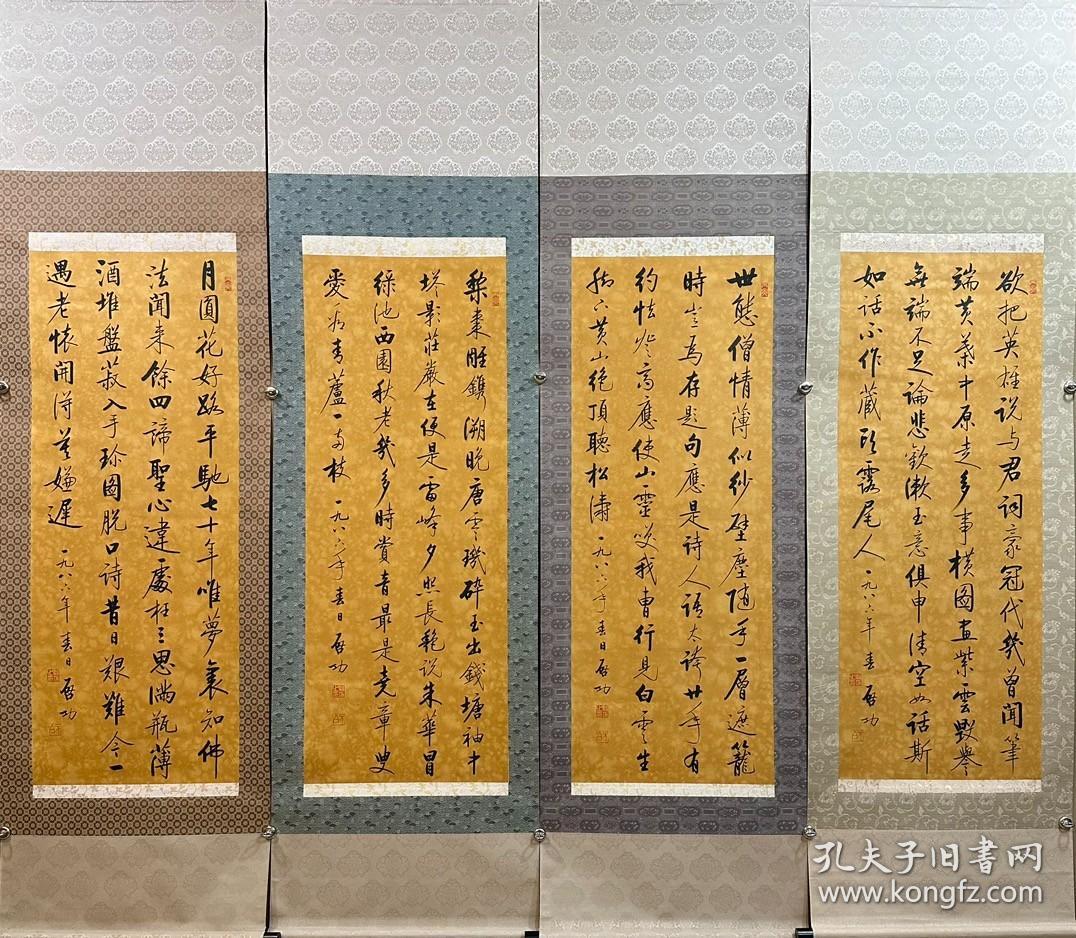 欲把英雄说与君词豪冠代幾曾闻筆
端黄葉中原走多事横圖畫紫雲毀譽
無端不足論悲歡漱玉意俱申清空如話斯
如话不作藏頭露尾人 一九八六年春日啓功
世態僧情薄似紗壁塵随手一層遮籠
時豈為存题句應是詩人語太誇廿年有
約怯登高應使山靈笑我曹行見白雲生
脚下黄山絶頂聽松濤 一九八六年春日啓功
梨棗雕鐫溯晚唐零璣碎玉出錢塘袖中
塔影莊嚴在便是雷峰夕照長艷说朱華冒
緑池西園秋老幾多時賞音最是堯章叟
愛為青蘆一兩枝 一九八六年春日啓功
月圓花好路平馳七十年唯夢裏知佛
法聞来餘四諦聖心違處枉三思满瓶薄
酒堆盤菽入手珍圖脱口詩昔日艱難今一
遇老懷開得莫嫌遲 一九八六年春日啓功
孔夫子旧書网
www.kongfz.com